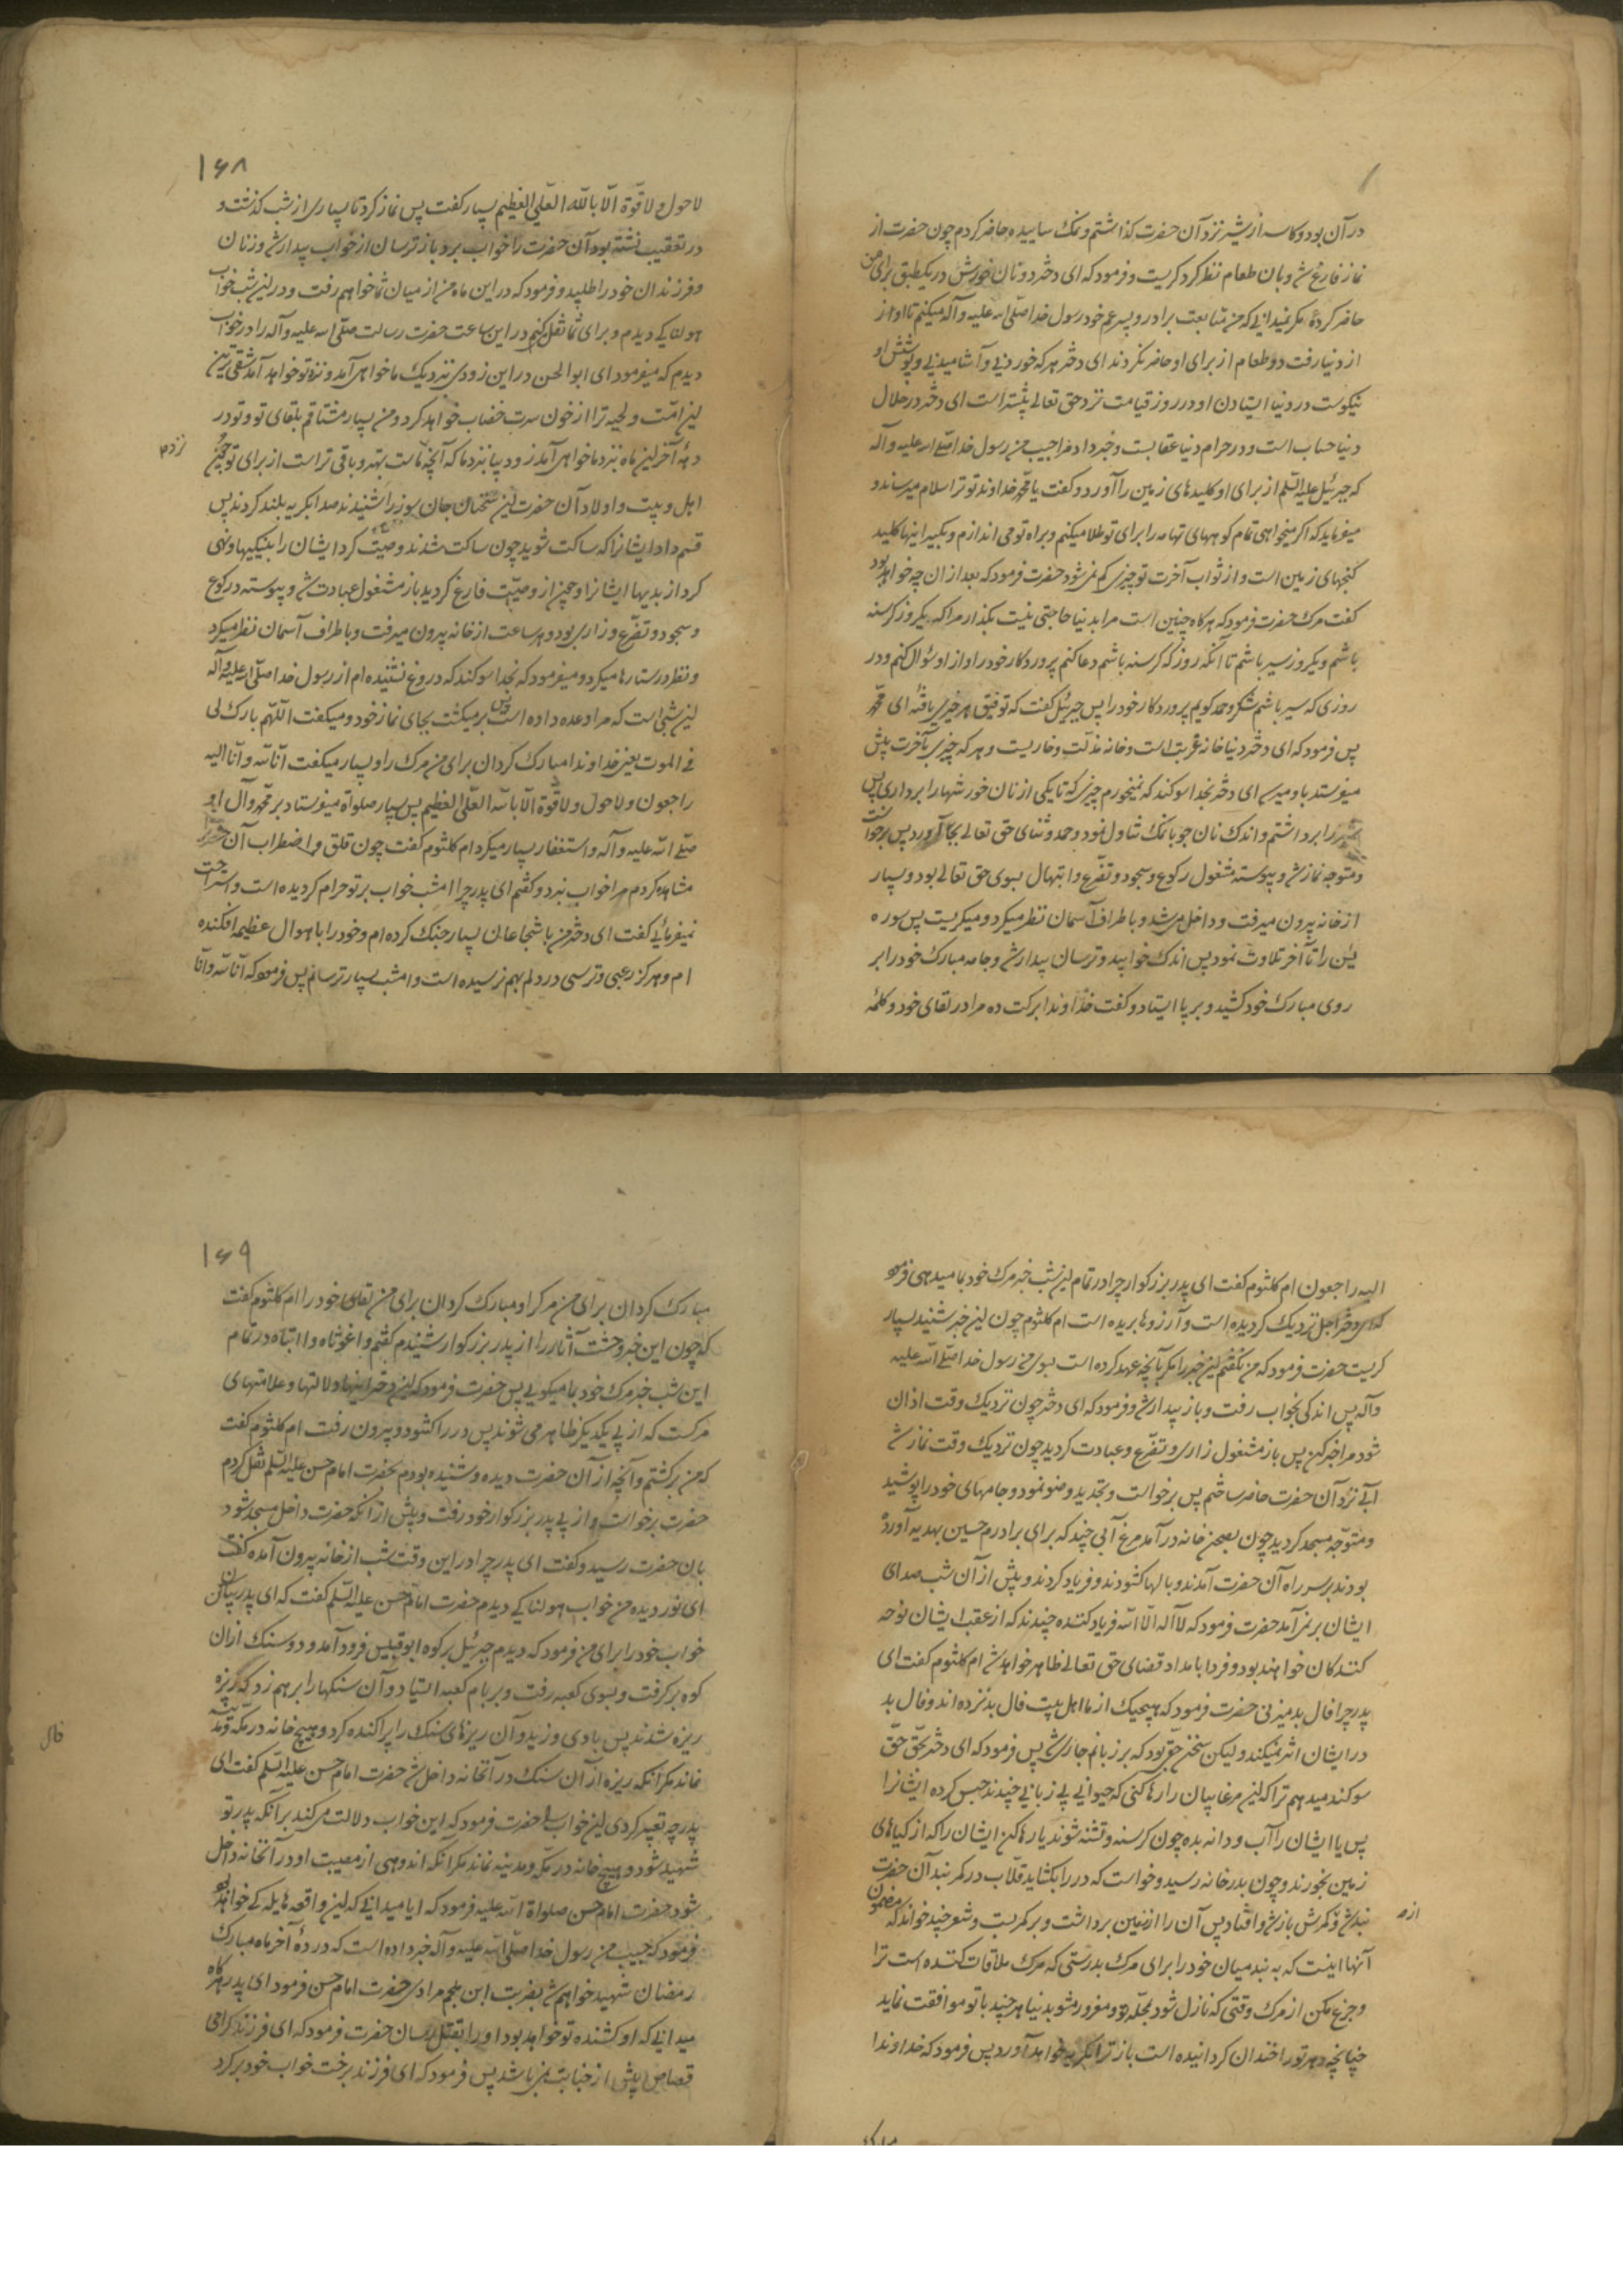 در آن بود و کاسه از شیر نزد آن حضرت گذاشتم و نمک ساییده حاضر کردم چون حضرت از
نماز فارغ شد و بان طعام نظر کرد گریست و فرمود که ای دختر دو نان خورش در یکطبق برای من
حاضر کردهٔ مگر نمیدانی که من متابعت برادر و پسر عم خود رسول خدا صلی الله علیه و آله میکنم تا او از
از دنیا رفت دو طعام از برای او حاضر نکردند ای دختر هر که خوردنی و آشامیدنی و پوشش او
نیکوست در دنیا ایستادن او در روز قیامت نزد حق تعالی بیشتر است ای دختر در حلال
دنیا حساب است و در حرام دنیا عقابست و خبر داد مرا حبیب من رسول خدا صلی الله علیه و آله
که جبرئیل علیه السلم از برای او کلیدهای زمین را آورد و گفت یا محمد خداوند تو ترا سلام میرساند و
میفرماید که اگر میخواهی تمام کوههای تهامه را برای تو طلا میکنم و براه تو می اندازم و بگیر اینها کلید
گنجهای زمین است و از ثواب آخرت تو چیزی کم نمی شود حضرت فرمود که بعد از ان چه خواهد بود
گفت مرک حضرت فرمود که هر گاه چنین است مرا بدنیا حاجتی نیست بگذار مرا که یکروز گرسنه
باشم و یکروز سیر باشم تا آنکه روز که گرسنه باشم دعا کنم پروردکار خود را و از او سؤال کنم و در
روزی که سیر باشم شکر و حمد گویم پروردکار خود را پس جبرئیل گفت که توفیق هر خیری یافتهٔ ای محمد
پس فرمود که ای دختر دنیا خانه غربت است و خانه مذلّت و خاریست و هر که چیزی بآخرت پیش
میفرستد باو میرسد ای دختر بخدا سوکند که نمیخورم چیزی که تا یکی از نان خورشها را برداری پس
شیر را برداشتم و اندک نان جو با نمک تناول نمود و حمد و ثنای حق تعالی بجا آورد پس برخواست
و متوجه نماز شد و پیوسته مشغول رکوع و سجود و تضرّع و ابتهال بسوی حق تعالی بود و بسیار
از خانه بیرون میرفت و داخل میشد و باطراف آسمان نظر میکرد و میگریست پس سوره
یس را تا آخر تلاوت نمود پس اندک خوابید و ترسان بیدار شد و جامه مبارک خود را بر
روی مبارک خود کشید و بر پا ایستاد و گفت خداوندا برکت ده مرا در لقای خود و کلمهٔ
۱۶۸
لا حول و لا قوّة الّا بالله العلی العظیم بسیار گفت پس نماز کرد تا بسیاری از شب گذشت و
در تعقیب نشسته بود آن حضرت را خواب برد باز ترسان از خواب بیدار شد و زنان
و فرزندان خود را طلبید و فرمود که در این ماه من از میان شما خواهم رفت و در این شب خواب
هولناکی دیدم و برای شما نقل کنم در این ساعت حضرت رسالت صلی الله علیه و آله را در خواب
دیدم که میفرمود ای ابوالحسن در این زودی نزدیک ما خواهی آمد و نزد تو خواهد آمد شقی ترین
این امّت و لحیه ترا از خون سرت خضاب خواهد کرد و من بسیار مشتاقم بلقای تو و تو در
دههٔ آخر این ماه نزد ما خواهی آمد زود بیا نزد ما که آنچه نزد ماست بهتر و باقی تر است از برای تو چون
نزد
اهل و بیت و اولاد آن حضرت این سخنان جان سوز را شنیدند صدا بگریه بلند کردند پس
قسم داد ایشانرا که ساکت شوید چون ساکت شدند وصیّت کرد ایشان را بنیکیها و نهی
کرد از بدیها ایشانرا و چون از وصیّت فارغ گردید باز مشغول عبادت شد و پیوسته در رکوع
و سجود و تضرّع و زاری بود و هر ساعت از خانه بیرون میرفت و باطراف آسمان نظر میکرد
و نظر در ستارها میکرد و میفرمود که بخدا سوکند که دروغ نشنیده ام از رسول خدا صلی الله علیه و آله
این شبی است که مرا وعده داده است پس برمیگشت بجای نماز خود و میگفت اللّهم بارک لی
فی الموت یعنی خداوندا مبارک کردان برای من مرک را و بسیار میگفت انّا لله و انّا الیه
راجعون و لا حول و لا قوّة الّا بالله العلی العظیم پس بسیار صلواة میفرستاد بر محمد و آل او
صلی الله علیه و آله و استغفار بسیار میکرد ام کلثوم گفت چون قلق و اضطراب آن حضرت را
مشاهده کردم مرا خواب نبرد و گفتم ای پدر چرا امشب خواب بر تو حرام کردیده است و استراحت
نمیفرمائی گفت ای دختر من با شجاعان بسیار جنک کرده ام و خود را باهوال عظیمه افکنده
ام و هرگز رعبی و ترسی در دلم بهم نرسیده است و امشب بسیار ترسانم پس فرمود که انا لله و انا
الیه راجعون ام کلثوم گفت ای پدر بزرکوار چرا در تمام این شب خبر مرک خود بما میدهی فرمود
که ای دختر اجل نزدیک کردیده است و آرزوها بریده است ام کلثوم چون این خبر شنید بسیار
گریست حضرت فرمود که من نگفتم این خبر را مگر بآنچه عهد کرده است بسوی من رسول خدا صلی الله علیه
و آله پس اندکی بخواب رفت و باز بیدار شد و فرمود که ای دختر چون نزدیک وقت اذان
شود مرا خبر کن پس باز مشغول زاری و تضرّع و عبادت کردید چون نزدیک وقت نماز شد
آبی نزد آن حضرت حاضر ساختم پس برخواست و تجدید وضو نمود و جامهای خود را پوشید
و متوجّه مسجد کردید چون بصحن خانه در آمد مرغ آبی چند که برای برادرم حسین بهدیه آورده
بودند بر سر راه آن حضرت آمدند و بالها کشودند و فریاد کردند و پیش از آن شب صدای
ایشان بر نمی آمد حضرت فرمود که لا اله الّا الله فریاد کننده چندند که از عقب ایشان نوحه
کنندکان خواهند بود و فردا بامداد قضای حق تعالی ظاهر خواهد شد ام کلثوم گفت ای
پدر چرا فال بد میزنی حضرت فرمود که هیچیک از ما اهل بیت فال بد نزده اند و فال بد
در ایشان اثر نمیکند و لیکن سخن حقی بود که بر زبانم جاری شد پس فرمود که ای دختر بحقّ حقّ
سوکند میدهم ترا که این مرغابیان را رها کنی که حیوانی بی زبانی چندند حبس کرده ایشانرا
پس یا ایشان را آب و دانه بده چون کرسنه و تشنه شوند یا رها کن ایشان را که از کیاهای
زمین بخورند و چون بدر خانه رسید و خواست که در را بکشاید قلّاب در کمر بند آن حضرت
بند شد و کمرش باز شد و افتاد پس آن را از زمین برداشت و بر کمر بست و شعر چند خواند که مضمون
از
آنها اینست که به بند میان خود را برای مرک بدرستی که مرک ملاقات کننده است ترا
و جزع مکن از مرک وقتی که نازل شود بمحلّه تو و مغرور مشو بدنیا هر چند با تو موافقت نماید
چنانچه دهر تو را خندان کردانیده است باز ترا بگریه خواهد آورد پس فرمود که خداوندا
مبارک
۱۶۹
مبارک کردان برای من مرک را و مبارک کردان برای من لقای خود را ام کلثوم گفت
که چون این خبر وحشت آثار را از پدر بزرکوار شنیدم گفتم وا غوثاه وا ابتاه در تمام
این شب خبر مرک خود بما میگویی پس حضرت فرمود که این دختر اینها دلالتها و علامتهای
مرکست که از پی یکدیگر ظاهر می شوند پس در را کشود و بیرون رفت ام کلثوم گفت
که من برگشتم و آنچه از آن حضرت دیده و شنیده بودم بحضرت امام حسن علیه السلم نقل کردم
حضرت برخواست و از پی پدر بزرکوار خود رفت و پیش از آنکه حضرت داخل مسجد شود
بان حضرت رسید و گفت ای پدر چرا در این وقت شب از خانه بیرون آمده گفت
ای نور دیده من خواب هولناکی دیدم حضرت امام حسن علیه السلم گفت که ای پدر بیان کن
خواب خود را برای من فرمود که دیدم جبرئیل بر کوه ابوقبیس فرود آمد و دو سنک از ان
کوه بر گرفت و بسوی کعبه رفت و بر بام کعبه ایستاد و آن سنکها را بر هم زد که ریزه
ریزه شدند پس بادی وزید و آن ریزهای سنک را پراکنده کرد و هیچ خانه در مکه و مدینه
نماند مگر آنکه ریزه از آن سنک در آنخانه داخل شد حضرت امام حسن علیه السلم گفت ای
فال
پدر چه تعبیر کردی این خواب را حضرت فرمود که این خواب دلالت می کند بر آنکه پدر تو
شهید شود و هیچ خانه در مکّه و مدینه نماند مگر آنکه اندوهی از مصیبت او در آنخانه داخل
شود حضرت امام حسن صلواة الله علیه فرمود که ایا میدانی که این واقعه هایله کی خواهد بود
فرمود که حبیب من رسول خدا صلی الله علیه و آله خبر داده است که در دههٔ آخر ماه مبارک
رمضان شهید خواهم شد بضربت ابن ملجم مرادی حضرت امام حسن فرمود ای پدر هر گاه
میدانی که او کشنده تو خواهد بود او را بقتل رسان حضرت فرمود که ای فرزند کرامی
قصاص پیش از جنایت نمی باشد پس فرمود که ای فرزند برخت خواب خود برگرد